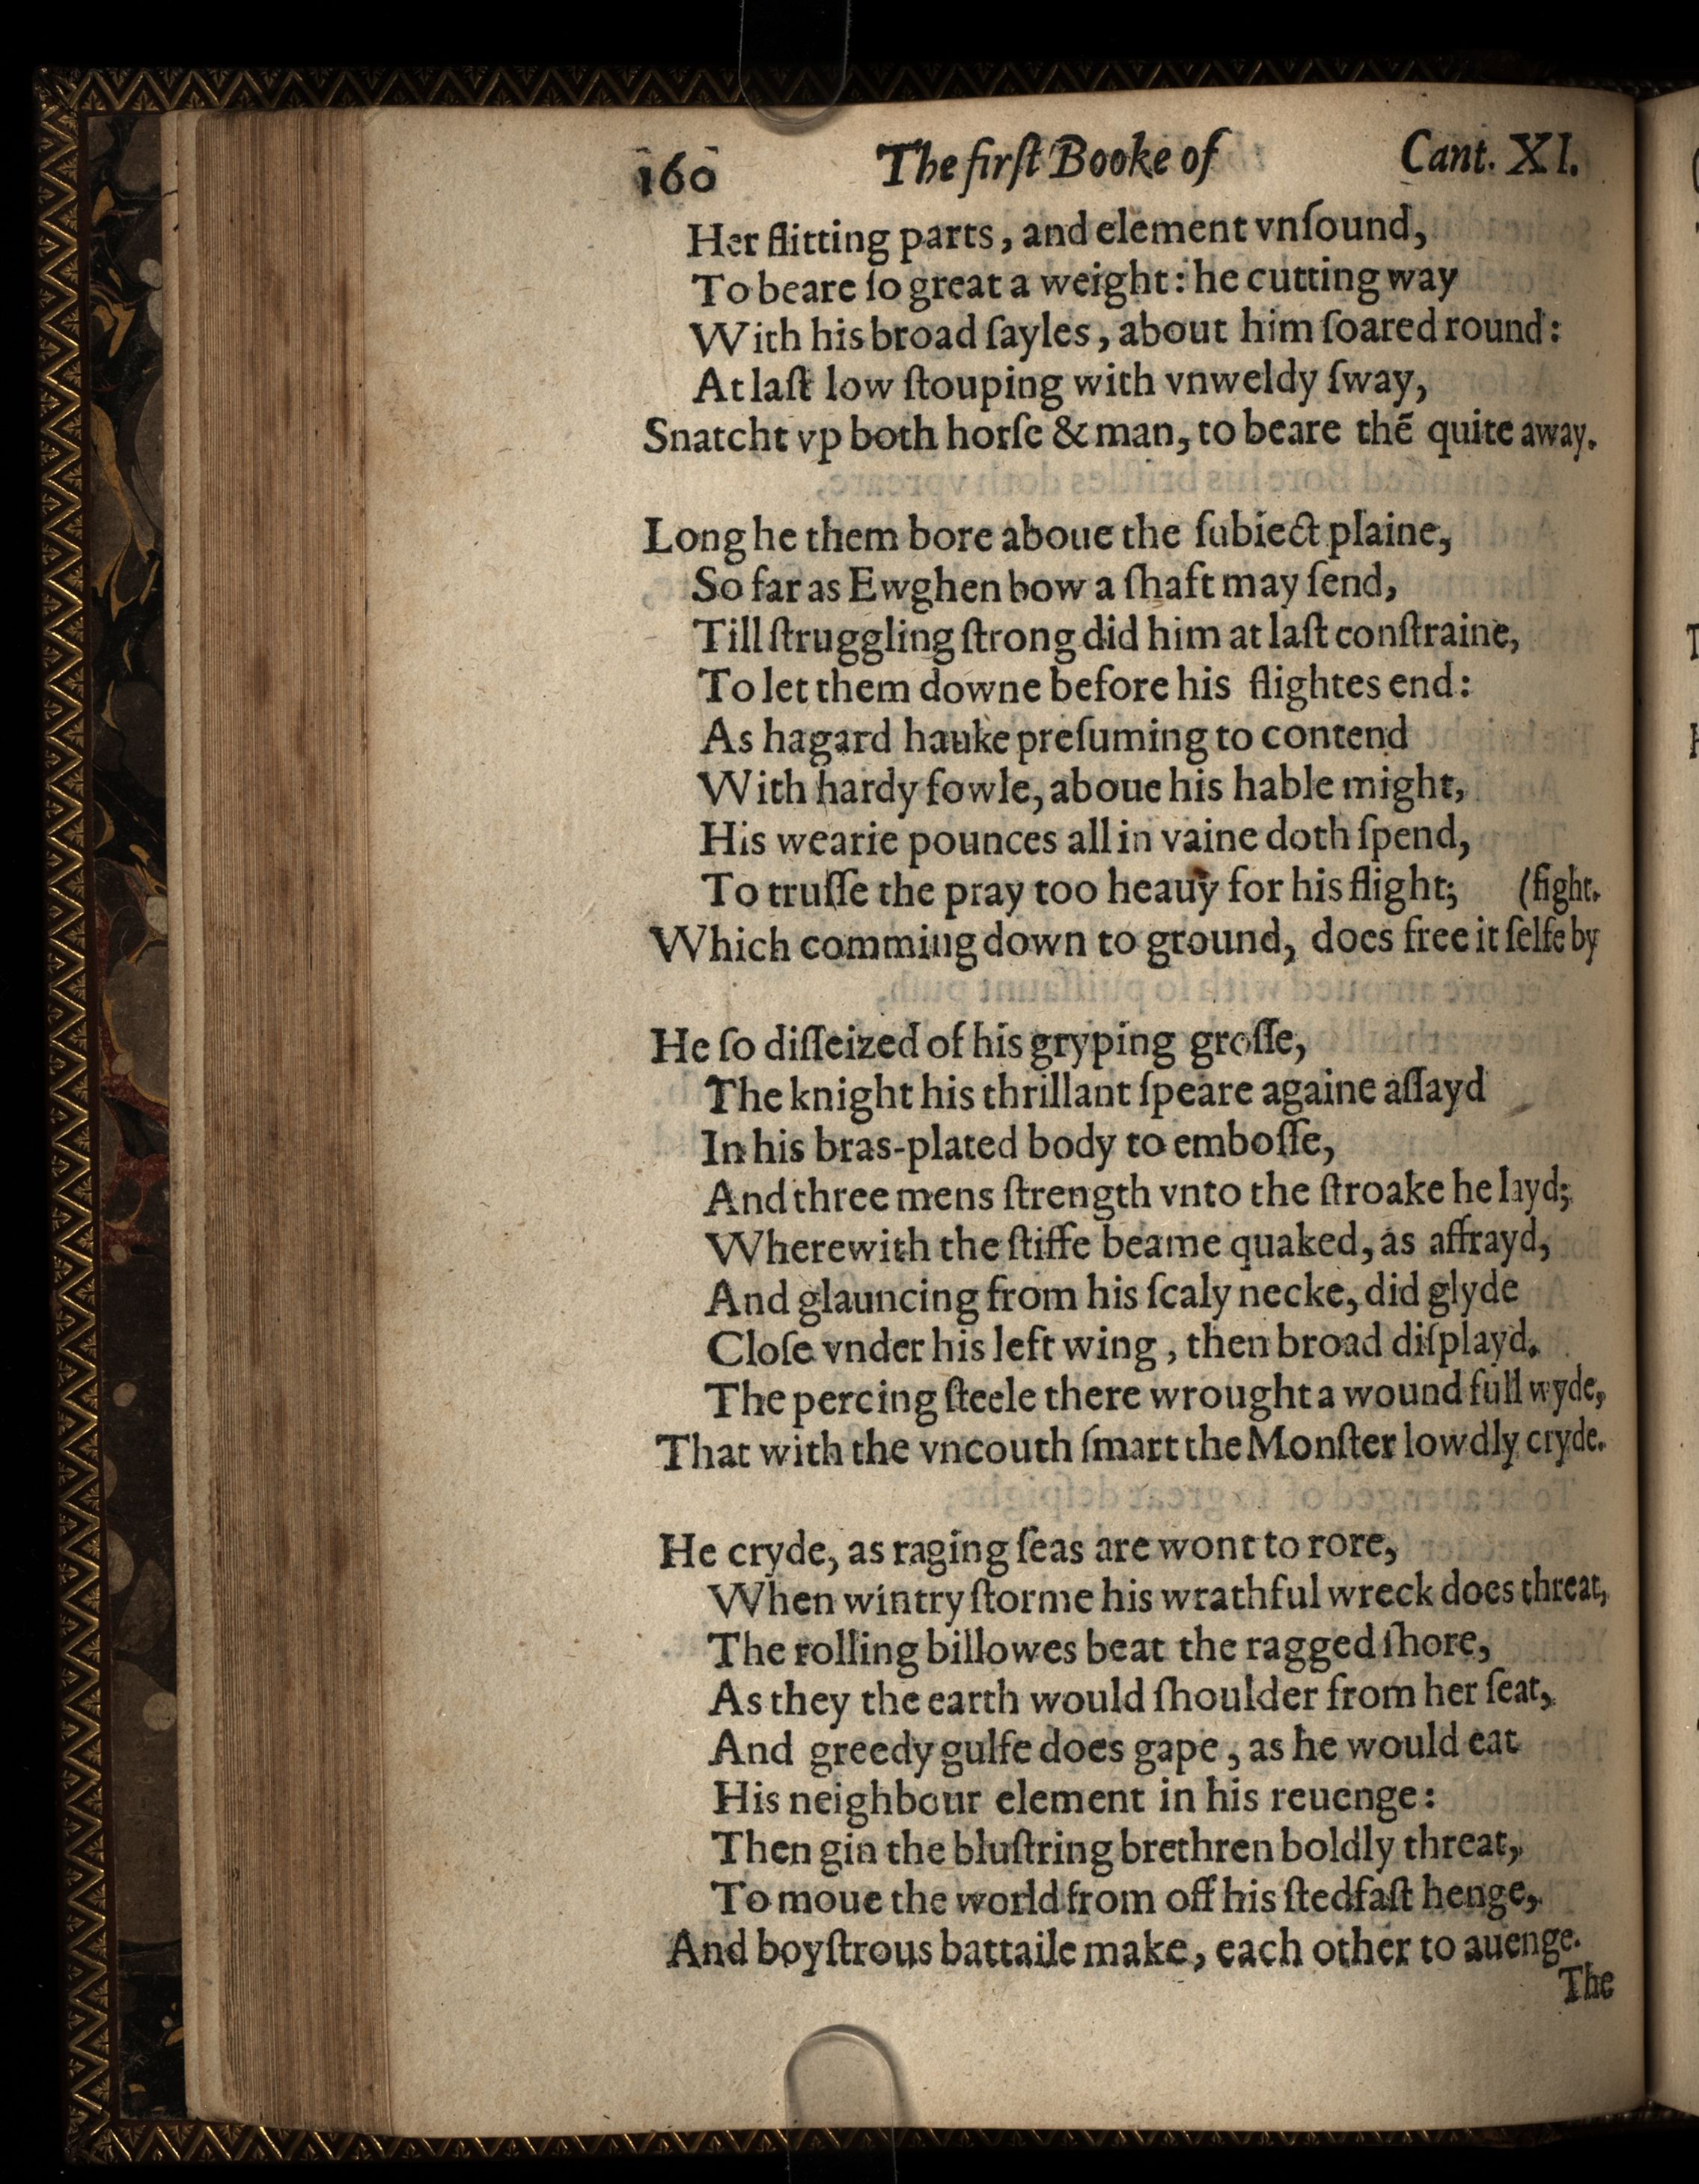 160 The firſt Booke of Cant. XI.
Her flitting parts, and element vnſound,
To beare ſo great a weight: he cutting way
With his broad ſayles, about him ſoared round:
At laſt low ſtouping with vnweldy ſway,
Snatcht vp both horſe & man, to beare thē quite away.
Long he them bore aboue the ſubiect plaine,
So far as Ewghen bow a ſhaft may ſend,
Till ſtruggling ſtrong did him at laſt conſtraine,
To let them downe before his flightes end:
As hagard hauke preſuming to contend
With hardy fowle, aboue his hable might,
His wearie pounces all in vaine doth ſpend,
To truſſe the pray too heauy for his flight; (fight.
Which comming down to ground, does free it ſelfe by
He ſo diſſeized of his gryping groſſe,
The knight his thrillant ſpeare againe aſſayd
In his bras-plated body to emboſſe,
And three mens ſtrength vnto the ſtroake he layd;
Wherewith the ſtiffe beame quaked, as affrayd,
And glauncing from his ſcaly necke, did glyde
Cloſe vnder his left wing, then broad diſplayd.
The percing ſteele there wrought a wound full wyde,
That with the vncouth ſmart the Monſter lowdly cryde.
He cryde, as raging ſeas are wont to rore,
When wintry ſtorme his wrathful wreck does threat,
The rolling billowes beat the ragged ſhore,
As they the earth would ſhoulder from her ſeat,
And greedy gulfe does gape, as he would eat
His neighbour element in his reuenge:
Then gin the bluſtring brethren boldly threat,
To moue the world from off his ſtedfaſt henge,
And boyſtrous battaile make, each other to auenge.
The